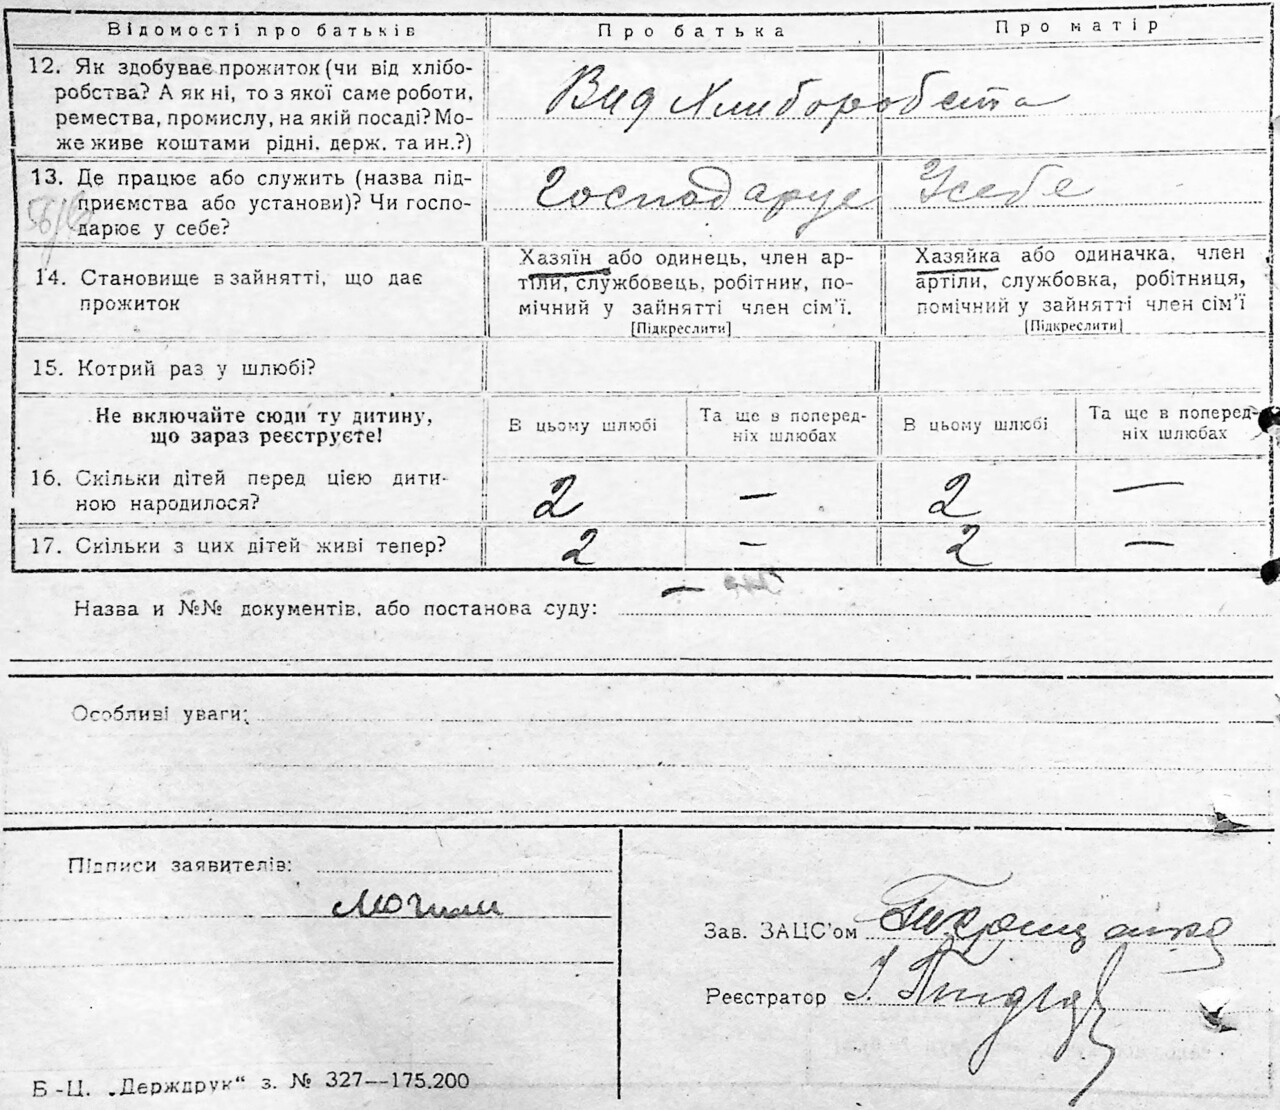 Відомості про батьків Про батька Про матір
12. Як здобуває прожиток (чи від хлібо-
робства? А як ні, то з якої саме роботи,
ремества, промислу, на якій посаді? Мо-
же живе коштами рідні. держ. та ин.?)
Вид Хлиборобства
13. Де працює або служить (назва під-
приємства або установи)? Чи госпо-
дарює у себе?
Господарує Усебе
14. Становище в зайнятті, що дає
прожиток
Хазяїн або одинець, член ар-
тіли, службовець, робітник, по-
мічний у зайнятті член сім'ї.
[Підкреслити]
Хазяйка або одиначка, член
артіли, службовка, робітниця,
помічний у зайнятті член сім'ї
[Підкреслити]
15. Котрий раз у шлюбі?
Не включайте сюди ту дитину,
що зараз реєструєте!
В цьому шлюбі
Та ще в поперед-
ніх шлюбах
В цьому шлюбі
Та ще в поперед-
ніх шлюбах
16. Скільки дітей перед цією дити-
ною народилося?
2 — 2 —
17. Скільки з цих дітей живі тепер? 2 — 2 —
Назва и №№ документів, або постанова суду: —
Особливі уваги:
Підписи заявителів:
Зав. ЗАЦС'ом
Реєстратор
Б-Ц. „Держдрук“ з. № 327—175.200